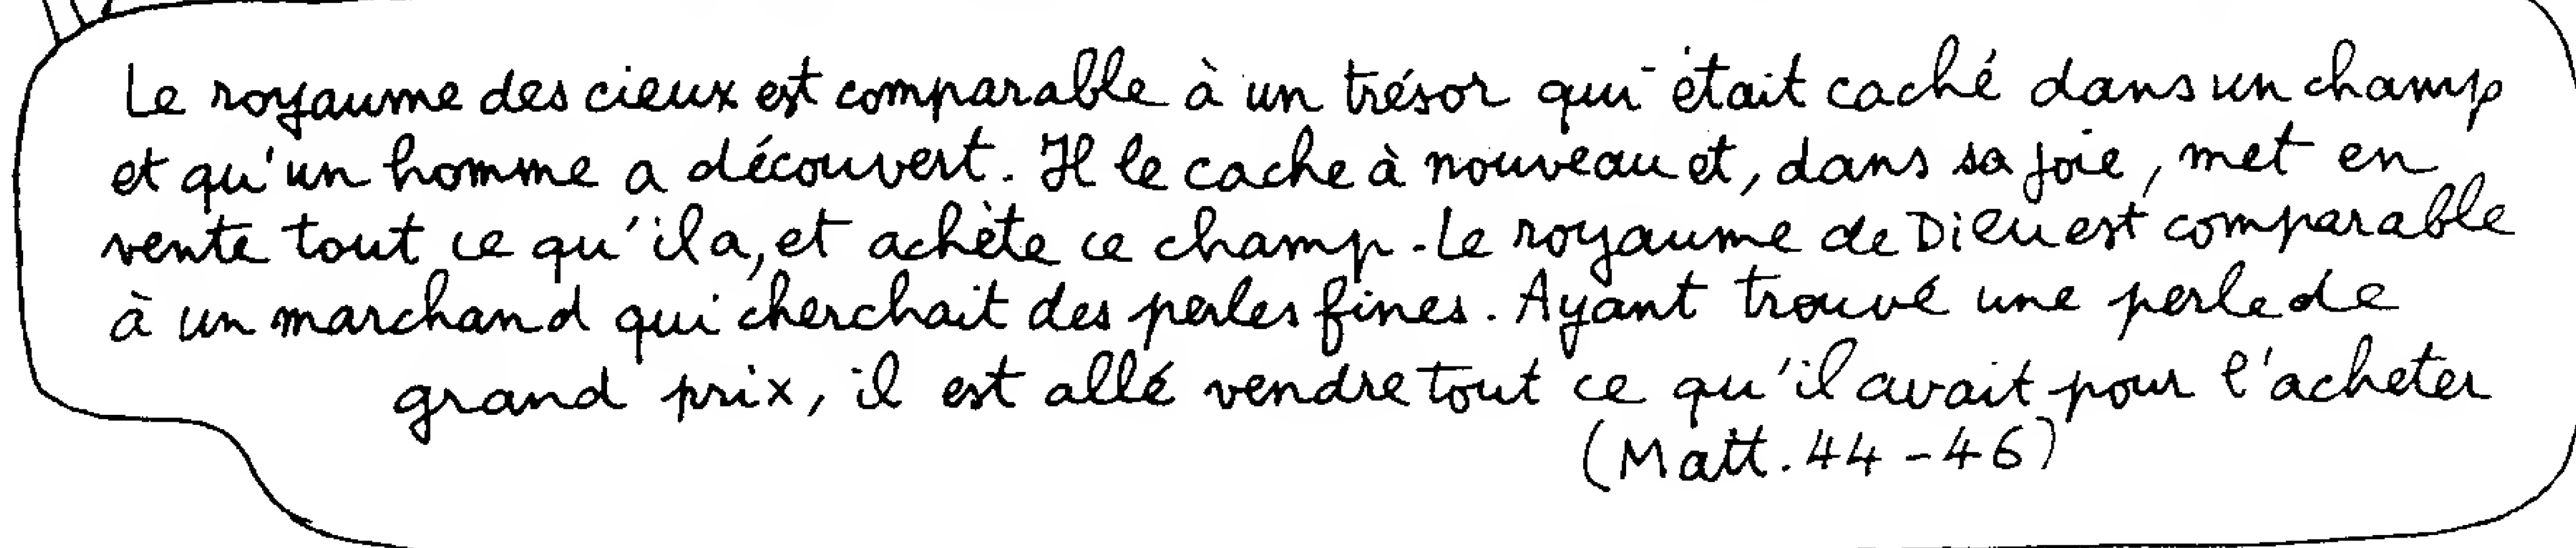 Le royaume des cieux est comparable à un trésor qui était caché dans un champ
et qu'un homme a découvert. Il le cache à nouveau et, dans sa joie, met en
vente tout ce qu'il a, et achète ce champ. Le royaume de Dieu est comparable
à un marchand qui cherchait des perles fines. Ayant trouvé une perle de
grand prix, il est allé vendre tout ce qu'il avait pour l'acheter
(Matt. 44-46)